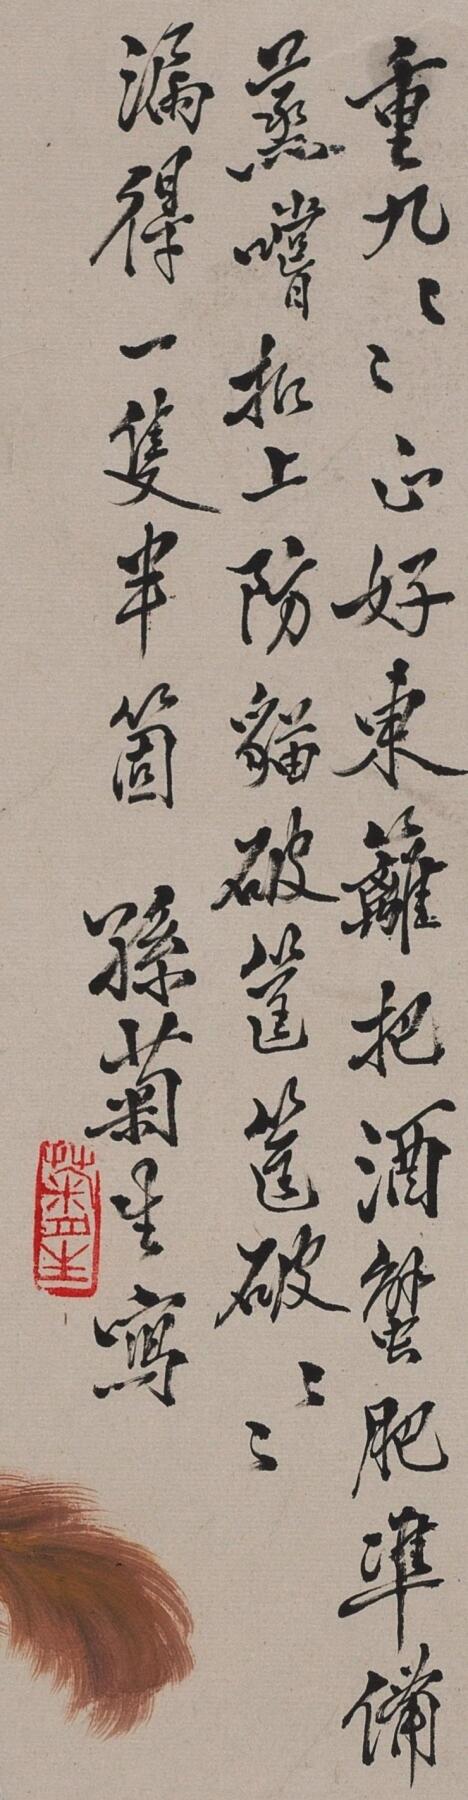 重九〻〻正好東籬把酒蟹肥準備
蒸嚐扣上防貓破筐筐破〻〻
漏得一隻半箇 孫菊生寫
菊生